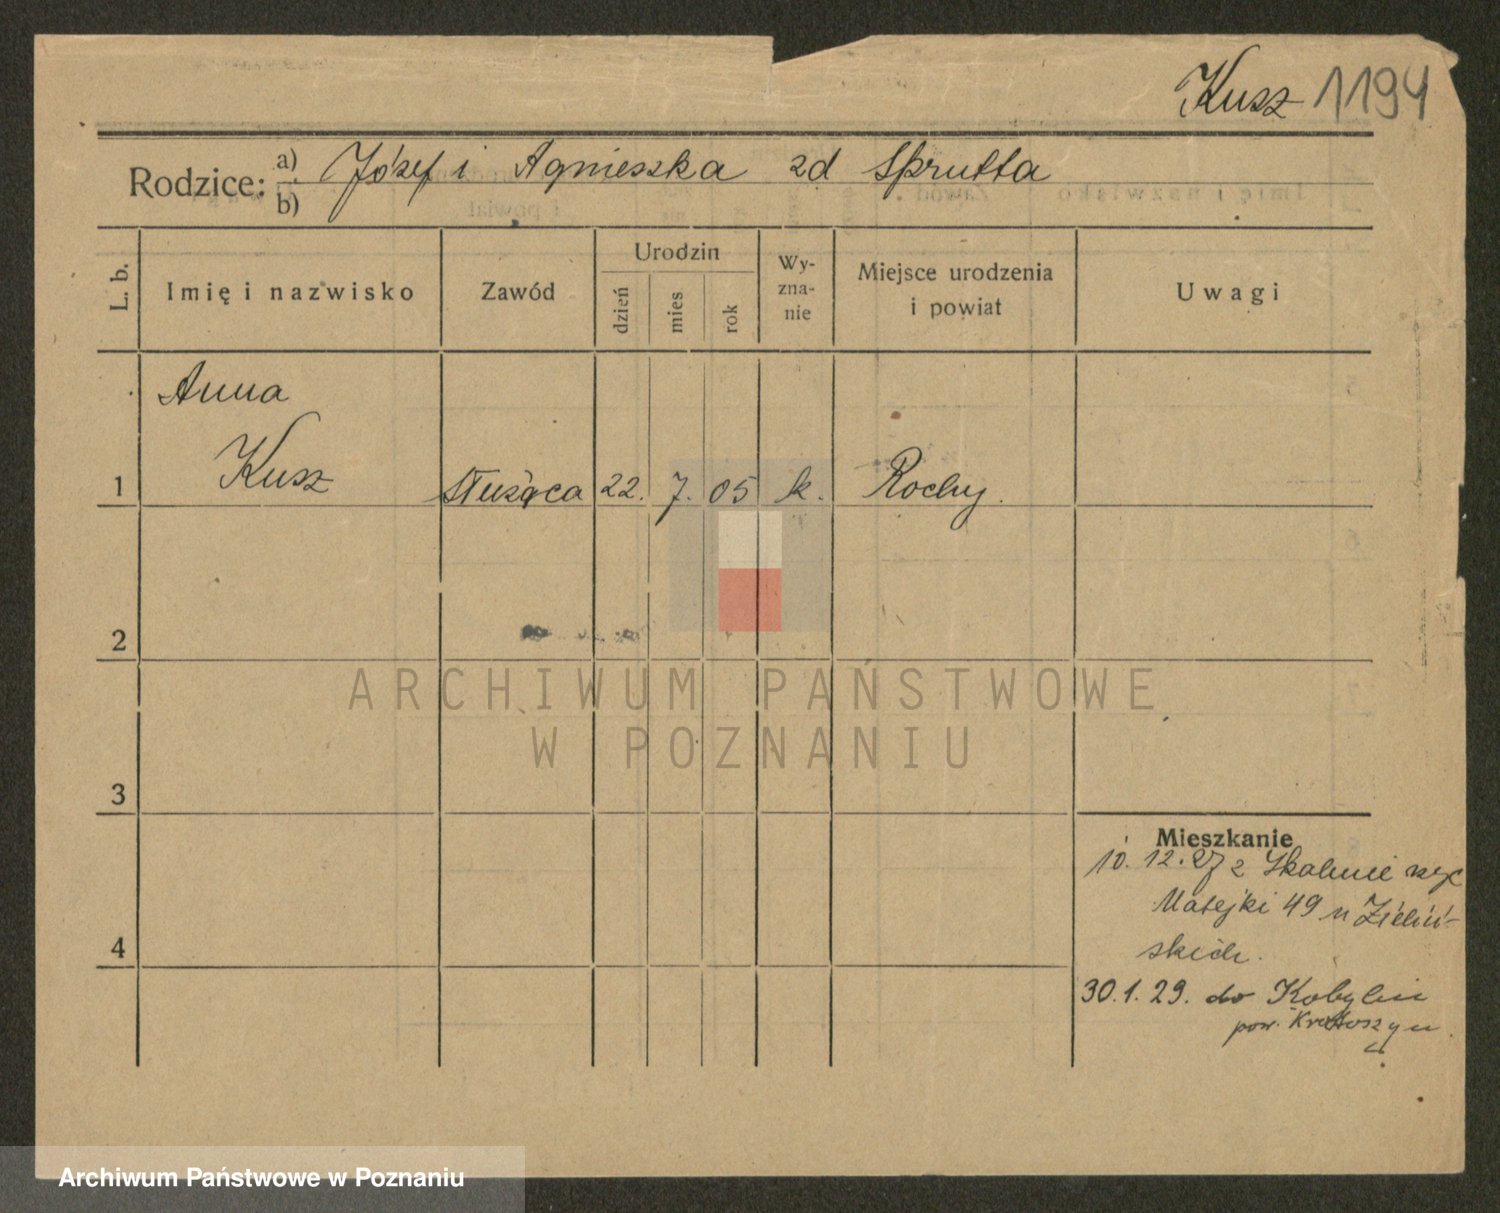 Kusz 1194
Rodzice: a) Józef i Agnieszka zd Sprutta
b)
L. b.
Imię i nazwisko
Zawód
Urodzin
dzień
mies
rok
Wy-
zna-
nie
Miejsce urodzenia
i powiat
Uwagi
Anna
1 Kusz służąca 22. 7. 05 k. Rochy.
2
ARCHIWUM PAŃSTWOWE
W POZNANIU
3
Mieszkanie
10. 12. 27 z
Matejki 49 u Zieliń-
4 skich.
30.1.29. do Kobylin
pow. Krotoszyn
Archiwum Państwowe w Poznaniu